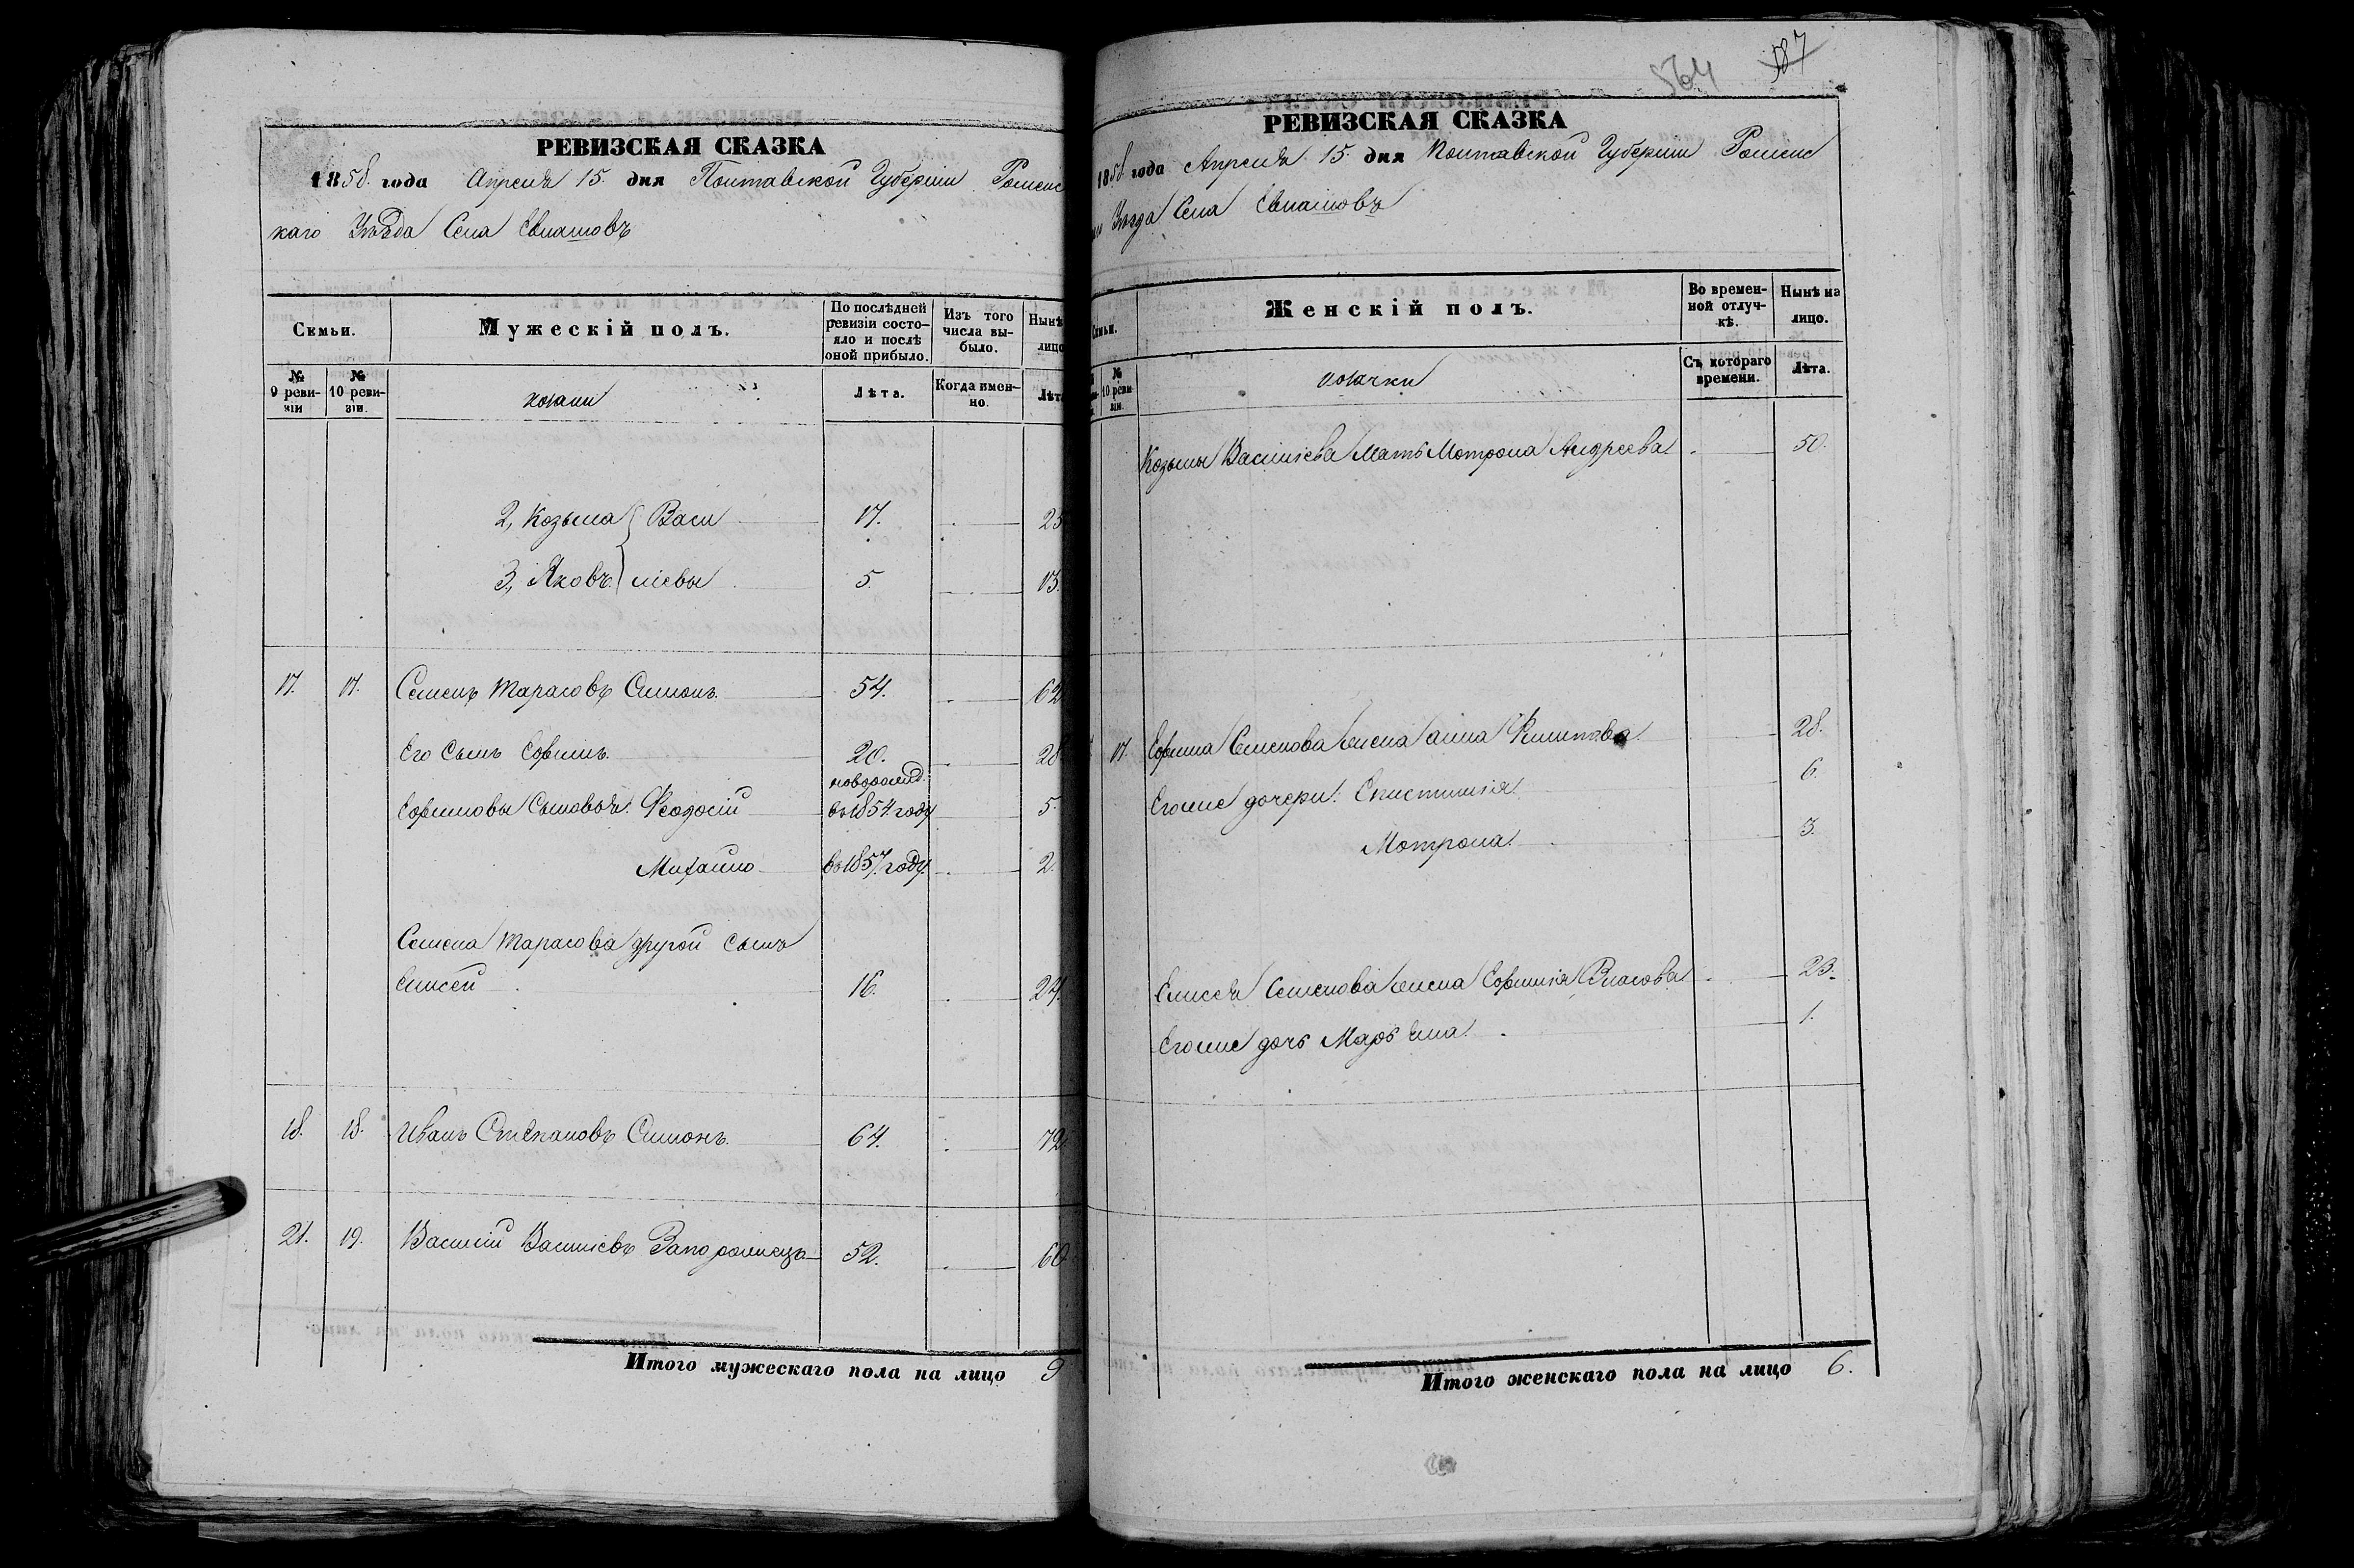 РЕВИЗСКАЯ СКАЗКА
1858. года Апреля 15. дня Полтавской Губернии Роменс
каго Уѣзда Села Евлашовъ
Семьи.
Мужескій полъ.
По послѣдней ревизіи состояло и послѣ оной прибыло.
Изъ того числа выбыло.
Нынѣ
лицо
№ 9 ревизіи
№ 10 ревизіи.
козаки
Лѣта.
Когда именно.
Лѣта
2, Козьма Васи 17. 25
3, Яковъ ліевы 5. 13.
17. 17. Семенъ Тарасовъ Симонъ. 54. 62
Его Сынъ Ефимъ. 20. 28
новорожд:
Ефимовы Сыновья: Феодосій въ 1854 году 5.
Михайло въ 1857. году. 2.
Семена Тарасова другой Сынъ
Елисей 16. 24.
18. 18. Иванъ Степановъ Симонъ. 64. 72
21. 19. Василій Васильевъ Запорожецъ 52. 60
Итого мужескаго пола на лицо 9
564 587
РЕВИЗСКАЯ СКАЗКА
1858 года Апреля 15. дня Полтавской Губернии Роменс
Уѣзда Села Евлашовъ
Семьи.
Женскій полъ.
Во временной отлучкѣ.
Нынѣ на лицо.
№ 10 ревизіи.
козачки
Съ котораго времени.
Лѣта.
Козьмы Василіева Мать Мотрона Андреева 50.
17. Ефима Семенова жена Анна Филипова 28.
Егоже дочери: Епистимія 6.
Мотрона 3.
Елисея Семенова жена Ефимія Власова 23.
Егоже дочь Марьяна 1.
Итого женскаго пола на лицо 6.